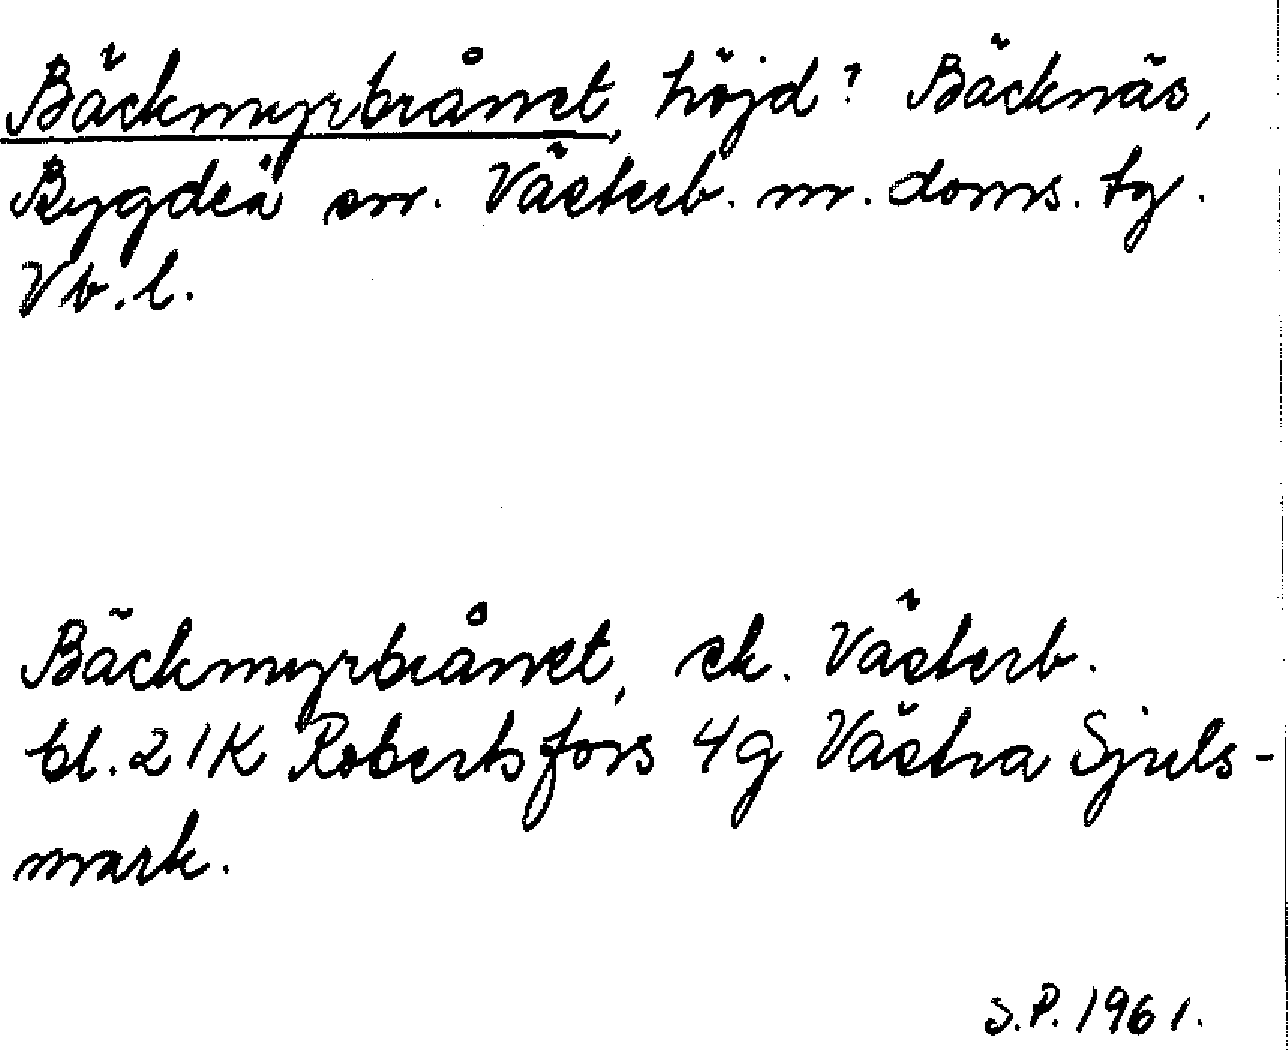 Bäckmyrbrånet, höjd? Bäcknäs,
Bygdeå sn. Västerb. n. doms. tg.
Vb. l.
Bäckmyrbrånet, ek. Västerb.
bl. 21K Robertsfors 4g Västra Sjuls-
mark.
S.P. 1961.